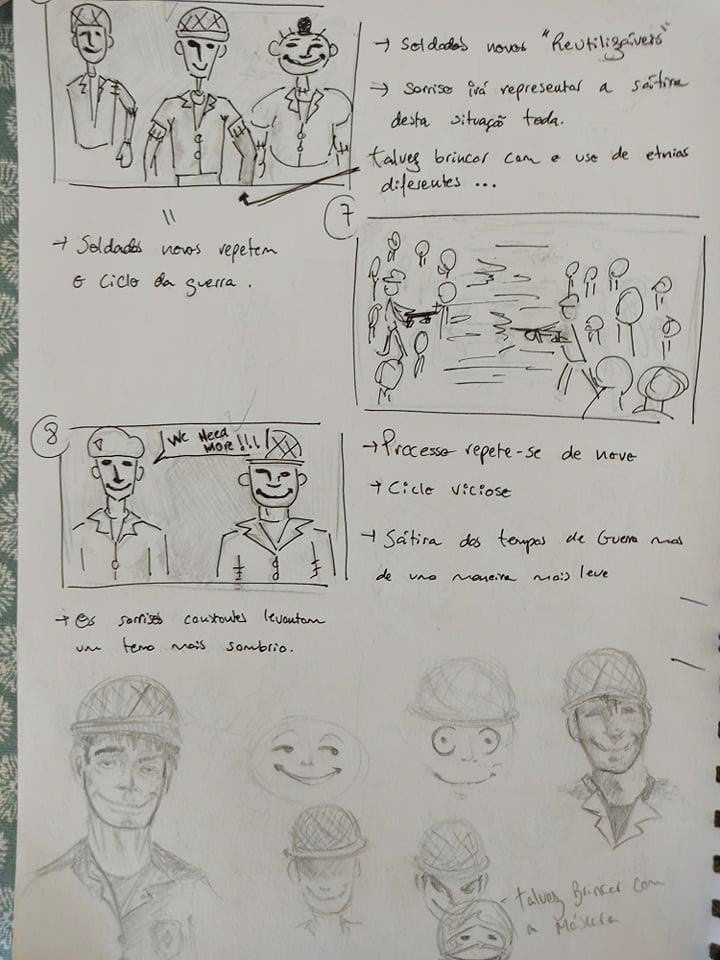 → Soldados novos "Reutilizáveis"
→ Sorriso irá representar a sátira
desta situação toda.
talvez brincar com o uso de etnias
diferentes ...
"
→ Soldados novos repetem
o ciclo da guerra.
7
8
We Need
more !!!!
→ Processo repete-se de novo
→ Ciclo vicioso
→ Sátira dos tempos de Guerra mas
de uma maneira mais leve
→ Os sorrisos constantes levantam
um tema mais sombrio.
- talvez Brincar com
a Máscara